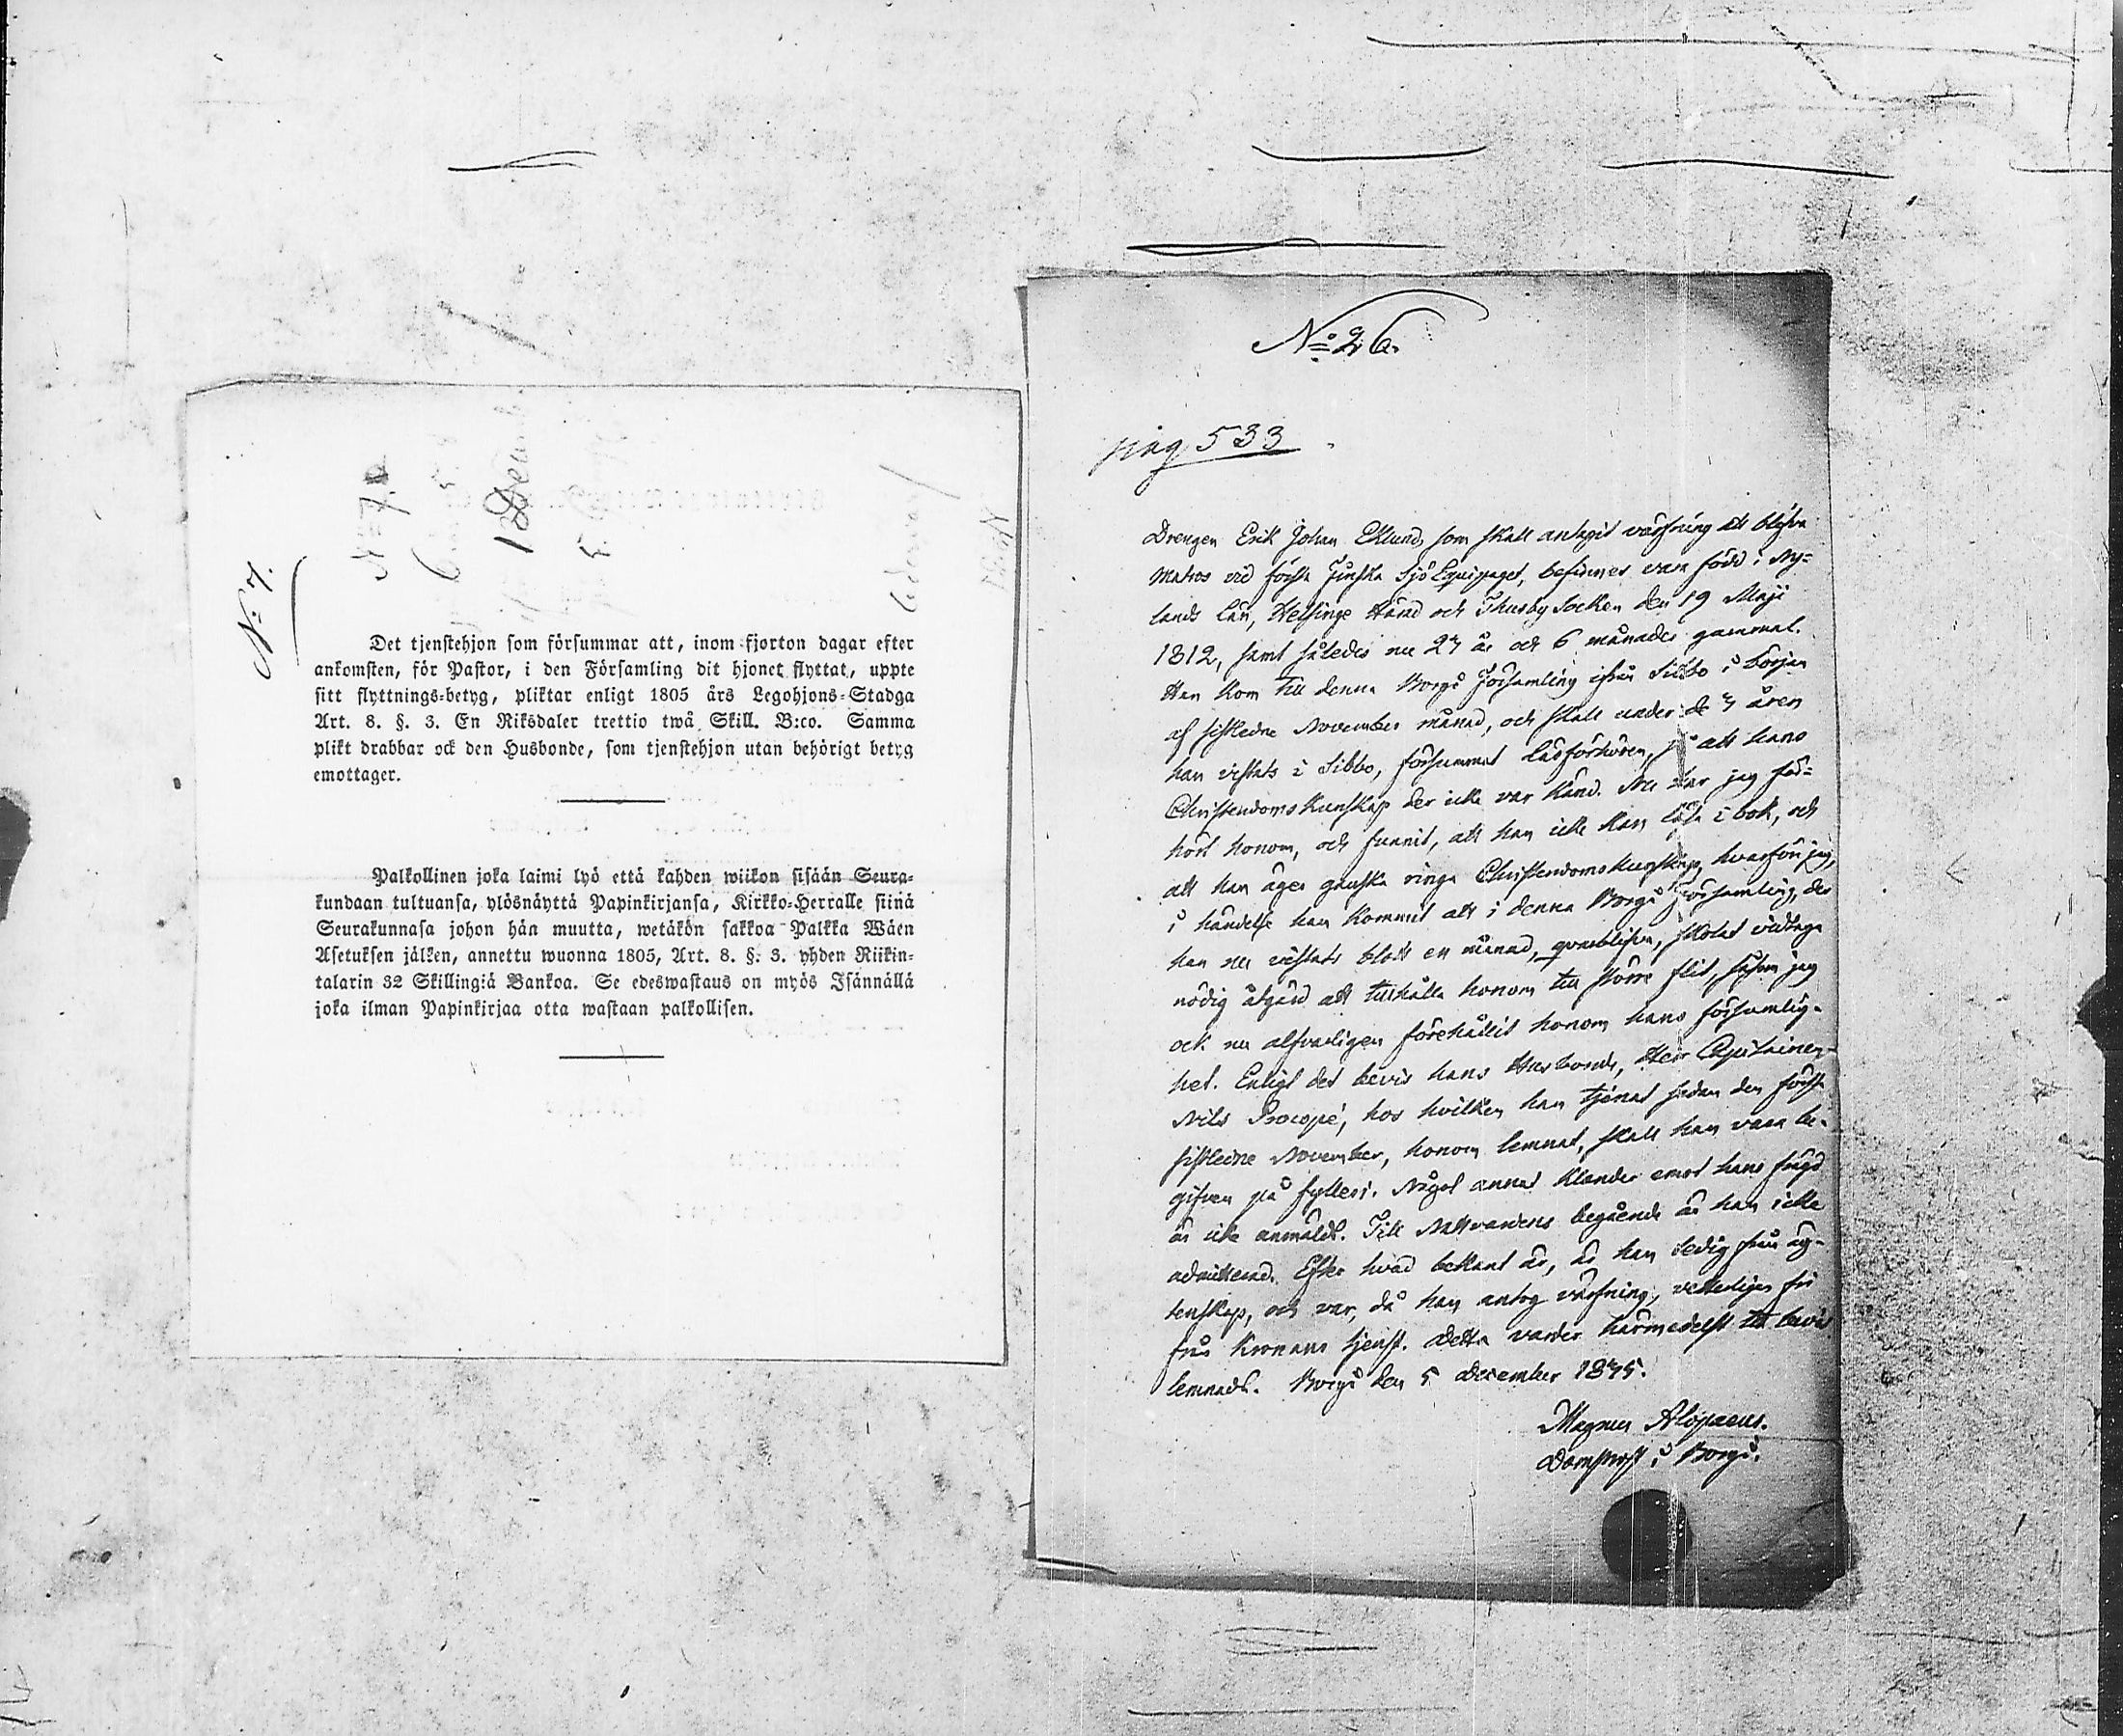 N:o 7.
Det tjenstehjon som försummar att, inom fjorton dagar efter
ankomsten, för Pastor, i den Församling dit hjonet flyttat, uppte
sitt flyttnings-betyg, pliktar enligt 1805 års Legohjons-Stadga
Art. 8. §. 3. En Riksdaler trettio twå Skill. B:co. Samma
plikt drabbar ock den Husbonde, som tjenstehjon utan behörigt betyg
emottager.
Palkollinen joka laimi lyö että kahden wiikon sisään Seura-
kundaan tultuansa, ylösnäyttä Papinkirjansa, Kirkko-Herralle siinä
Seurakunnasa johon hän muutta, wetäkön sakkoa Palkka Wäen
Asetuksen jälken, annettu wuonna 1805, Art. 8. §. 3. yhden Riikin-
talarin 32 Skillingiä Bankoa. Se edeswastaus on myös Isännällä
joka ilman Papinkirjaa otta wastaan palkollisen.
N:o 26.
pag 533
Drengen Erik Johan Eklund, som skall antagit värfning att blifva
Matros vid första Finska Sjö Equipaget, befinnes vara född i Ny-
lands Län, Helsinge Härad och Thusby Socken den 19 Maji
1812, samt således nu 27 år och 6 månader gammal.
Han kom till denna Borgå Församling ifrån Sibbo i början
af sistledne November månad, och skall under de 4 åren
han vistats i Sibbo, försummat läsförhören, så att hans
Christendoms Kunskap der icke var känd. Nu har jag för-
hört honom, och funnit, att han icke kan läsa i bok, och
att han äger ganska ringa Christendomskunskap, hvarför jag,
i händelse han kommit att i denna Borgå Församling, der
han nu vistats blott en månad, qvarblifva, skolat vidtaga
nödig åtgärd att tillhålla honom till större flit, såsom jag
ock nu alfvarligen förehållit honom hans försumlig-
het. Enligt det bevis hans Husbonde, Herr Capitainen
Nils Procopé, hos hvilken han tjenat sedan den första
sistledne November, honom lemnat, skall han vara be-
gifven på fylleri. Något annat klander emot hans frägd
är icke anmäldt. Till Nattvardens begående är han icke
admitterad. Efter hvad bekant är, är han ledig från äg-
tenskap, och var, då han antog värfning, vetterligen fri
från Kronans tjenst. Detta varder härmedelst till bevis
lemnadt. Borgå den 5 December 1845.
Magnus Alopaeus.
Domprost i Borgå.